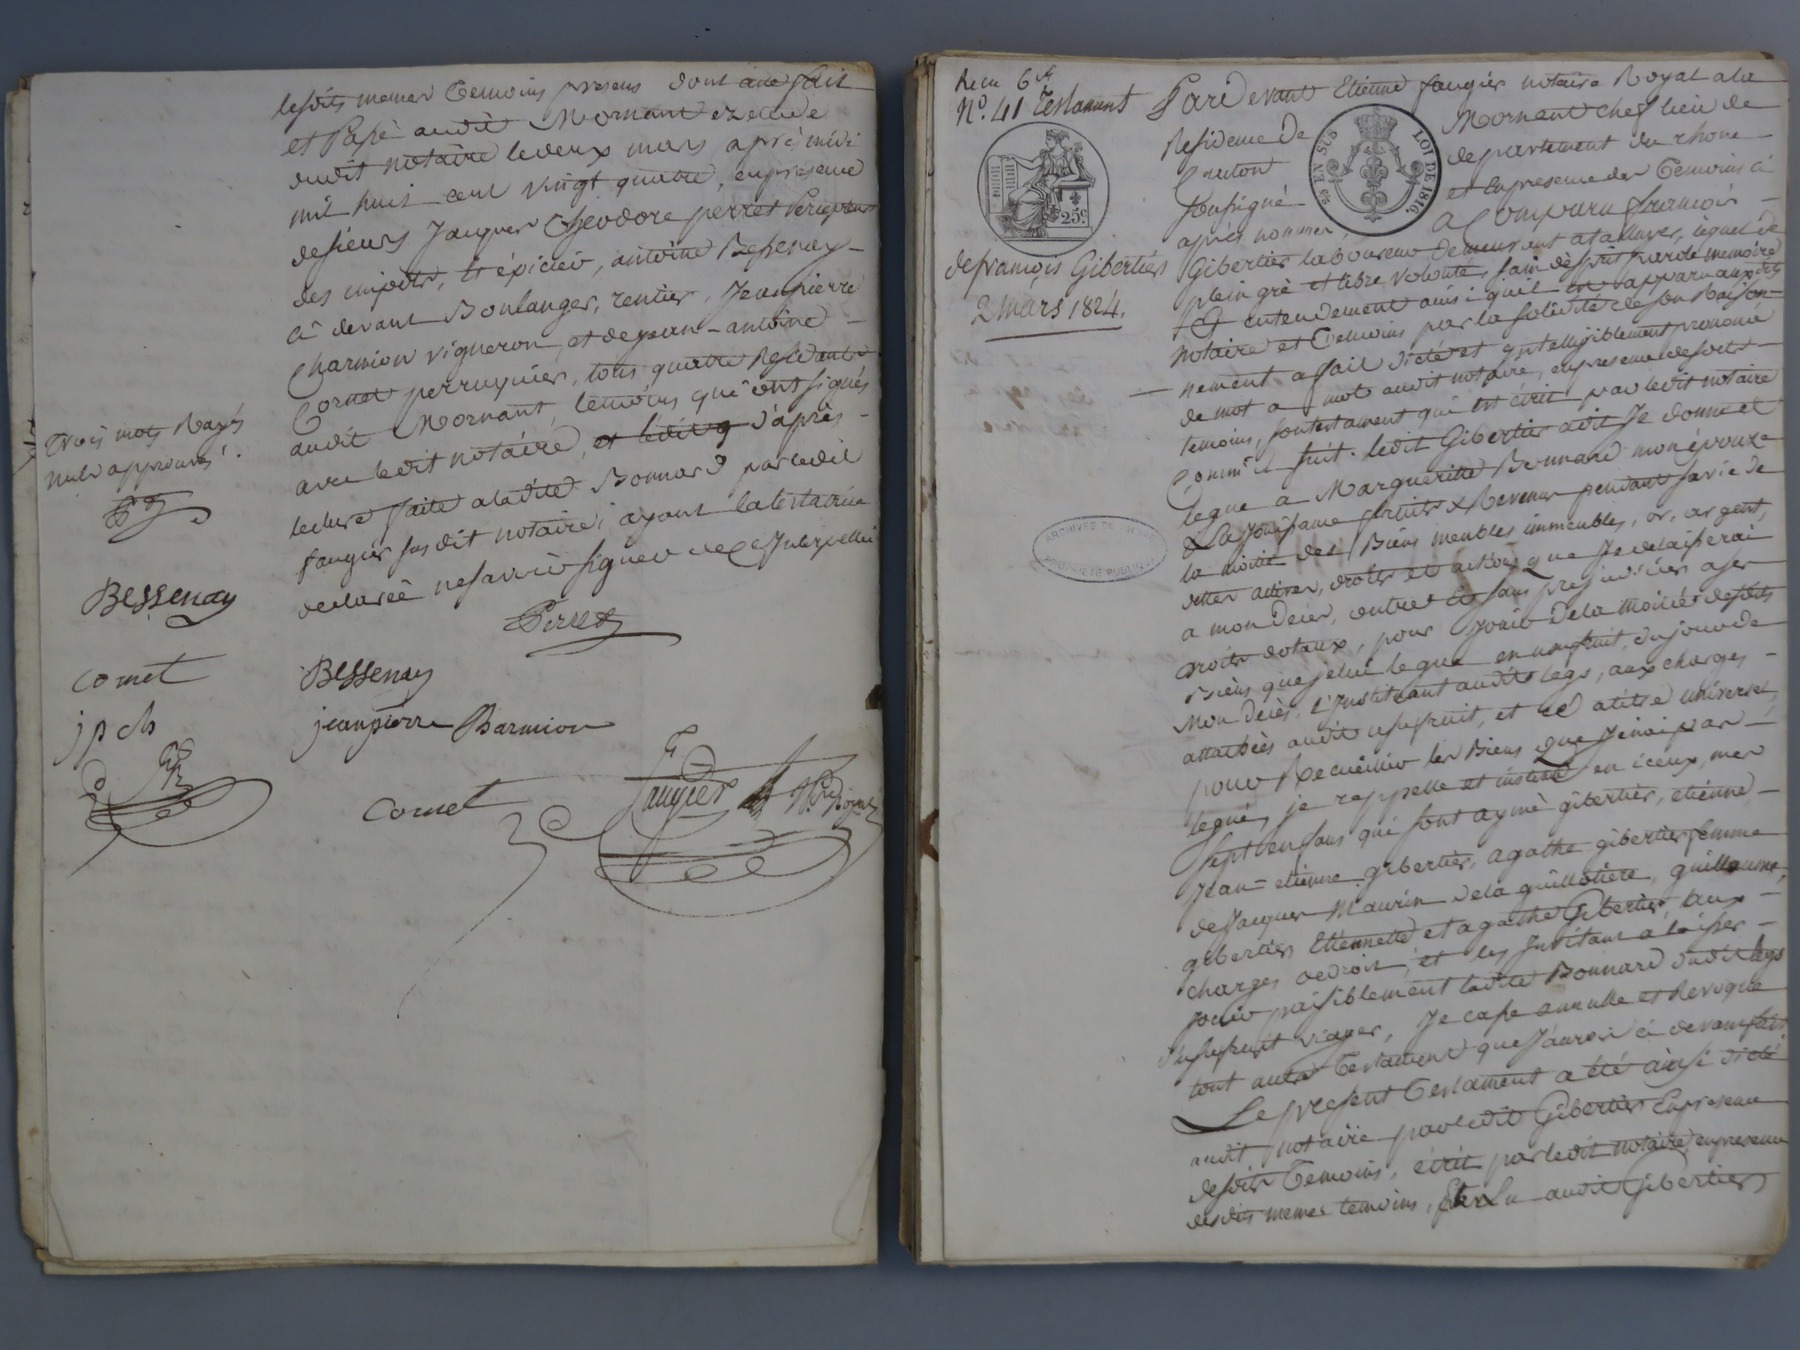 lesdits memes temoins presens dont acte fait
et Passé audit Mornant etude
dudit notaire le deux mars après midi
mil huit cent vingt quatre, en presence
de sieurs Jacques Théodore perret Percepteur
des impots, et épicier, antoine Bessenay
ci devant Boulanger, rentier, Jean pierre
Charmion vigneron, et de jean-antoine
Cornet perruquier, tous quatre Residants
audit Mornant, temoins qui ont signés
avec ledit notaire, et ledit g d'après
lecture faite a ladite Bonnard par ledit
faugier susdit notaire; ayant la testatrice
declarée ne savoir signer de ce Interpellée
Trois mots Rayés
nuls approuvés.
Perret
Bessenay
Bessenay
cornet
jeanpierre Charmion
jp ch
cornet
Faugier
Reçu 6f
N°. 41 Testament
25c
de françois Gibertier
2 mars 1824.
EN SUS
LOI DE 1816.
Pardevant Etienne faugier notaire Royal a la
Residence de Mornant chef lieu de
Canton departement du rhone
soussigné et en presence des temoins ci
après nommés, a Comparu françois
Gibertier laboureur demeurant a taluyers, lequel de
plein gré et libre volonté, sain d'esprit parole memoire
Et entendement ainsi qu'il est apparu auxdits
notaire et temoins par la solidité de son Raison-
nement a fait dicté et intelligiblement prononcé
de mot a mot audit notaire, en presence desdits
temoins, son testament qui est écrit par ledit notaire
Comm'il suit. ledit Gibertier a dit Je donne et
legue a Margueritte Bonnard mon épouse
La Jouissance fruits & Revenus pendant sa vie de
la moitié des Biens meubles immeubles, or, argent,
dettes actives, droits et actions que Je delaisserai
a mon deces, outre et sans prejudicier a ses
droits dotaux, pour Jouir de la moitié desdits
Biens que je lui legue en usufruit, du jour de
mon deces. L'Instituant audit legs, aux charges
attachées audit usufruit, et a titre universel
pour Recueillir les Biens que Je n'ai pas
legués, je rappelle et institue en iceux, mes
sept enfans qui sont aymé gibertier, etienne
Jean-etienne gibertier, agathe gibertier femme
de Jacques Maurin de la guillotière, guillaume
gibertier Etiennette et agathe Gibertier, aux
charges de droit, et les Invitant a laisser
jouir paisiblement ladite Bonnard dudit legs
Usufruit viager, Je casse annulle et Revoque
tout autre testament que J'aurois ci devant fait
Le present Testament a été ainsi dicté
audit notaire par ledit Gibertier En presence
desdits Temoins, écrit par ledit notaire, en presence
desdits memes temoins, Et Lu audit Gibertier
ARCHIVES DU RHONE